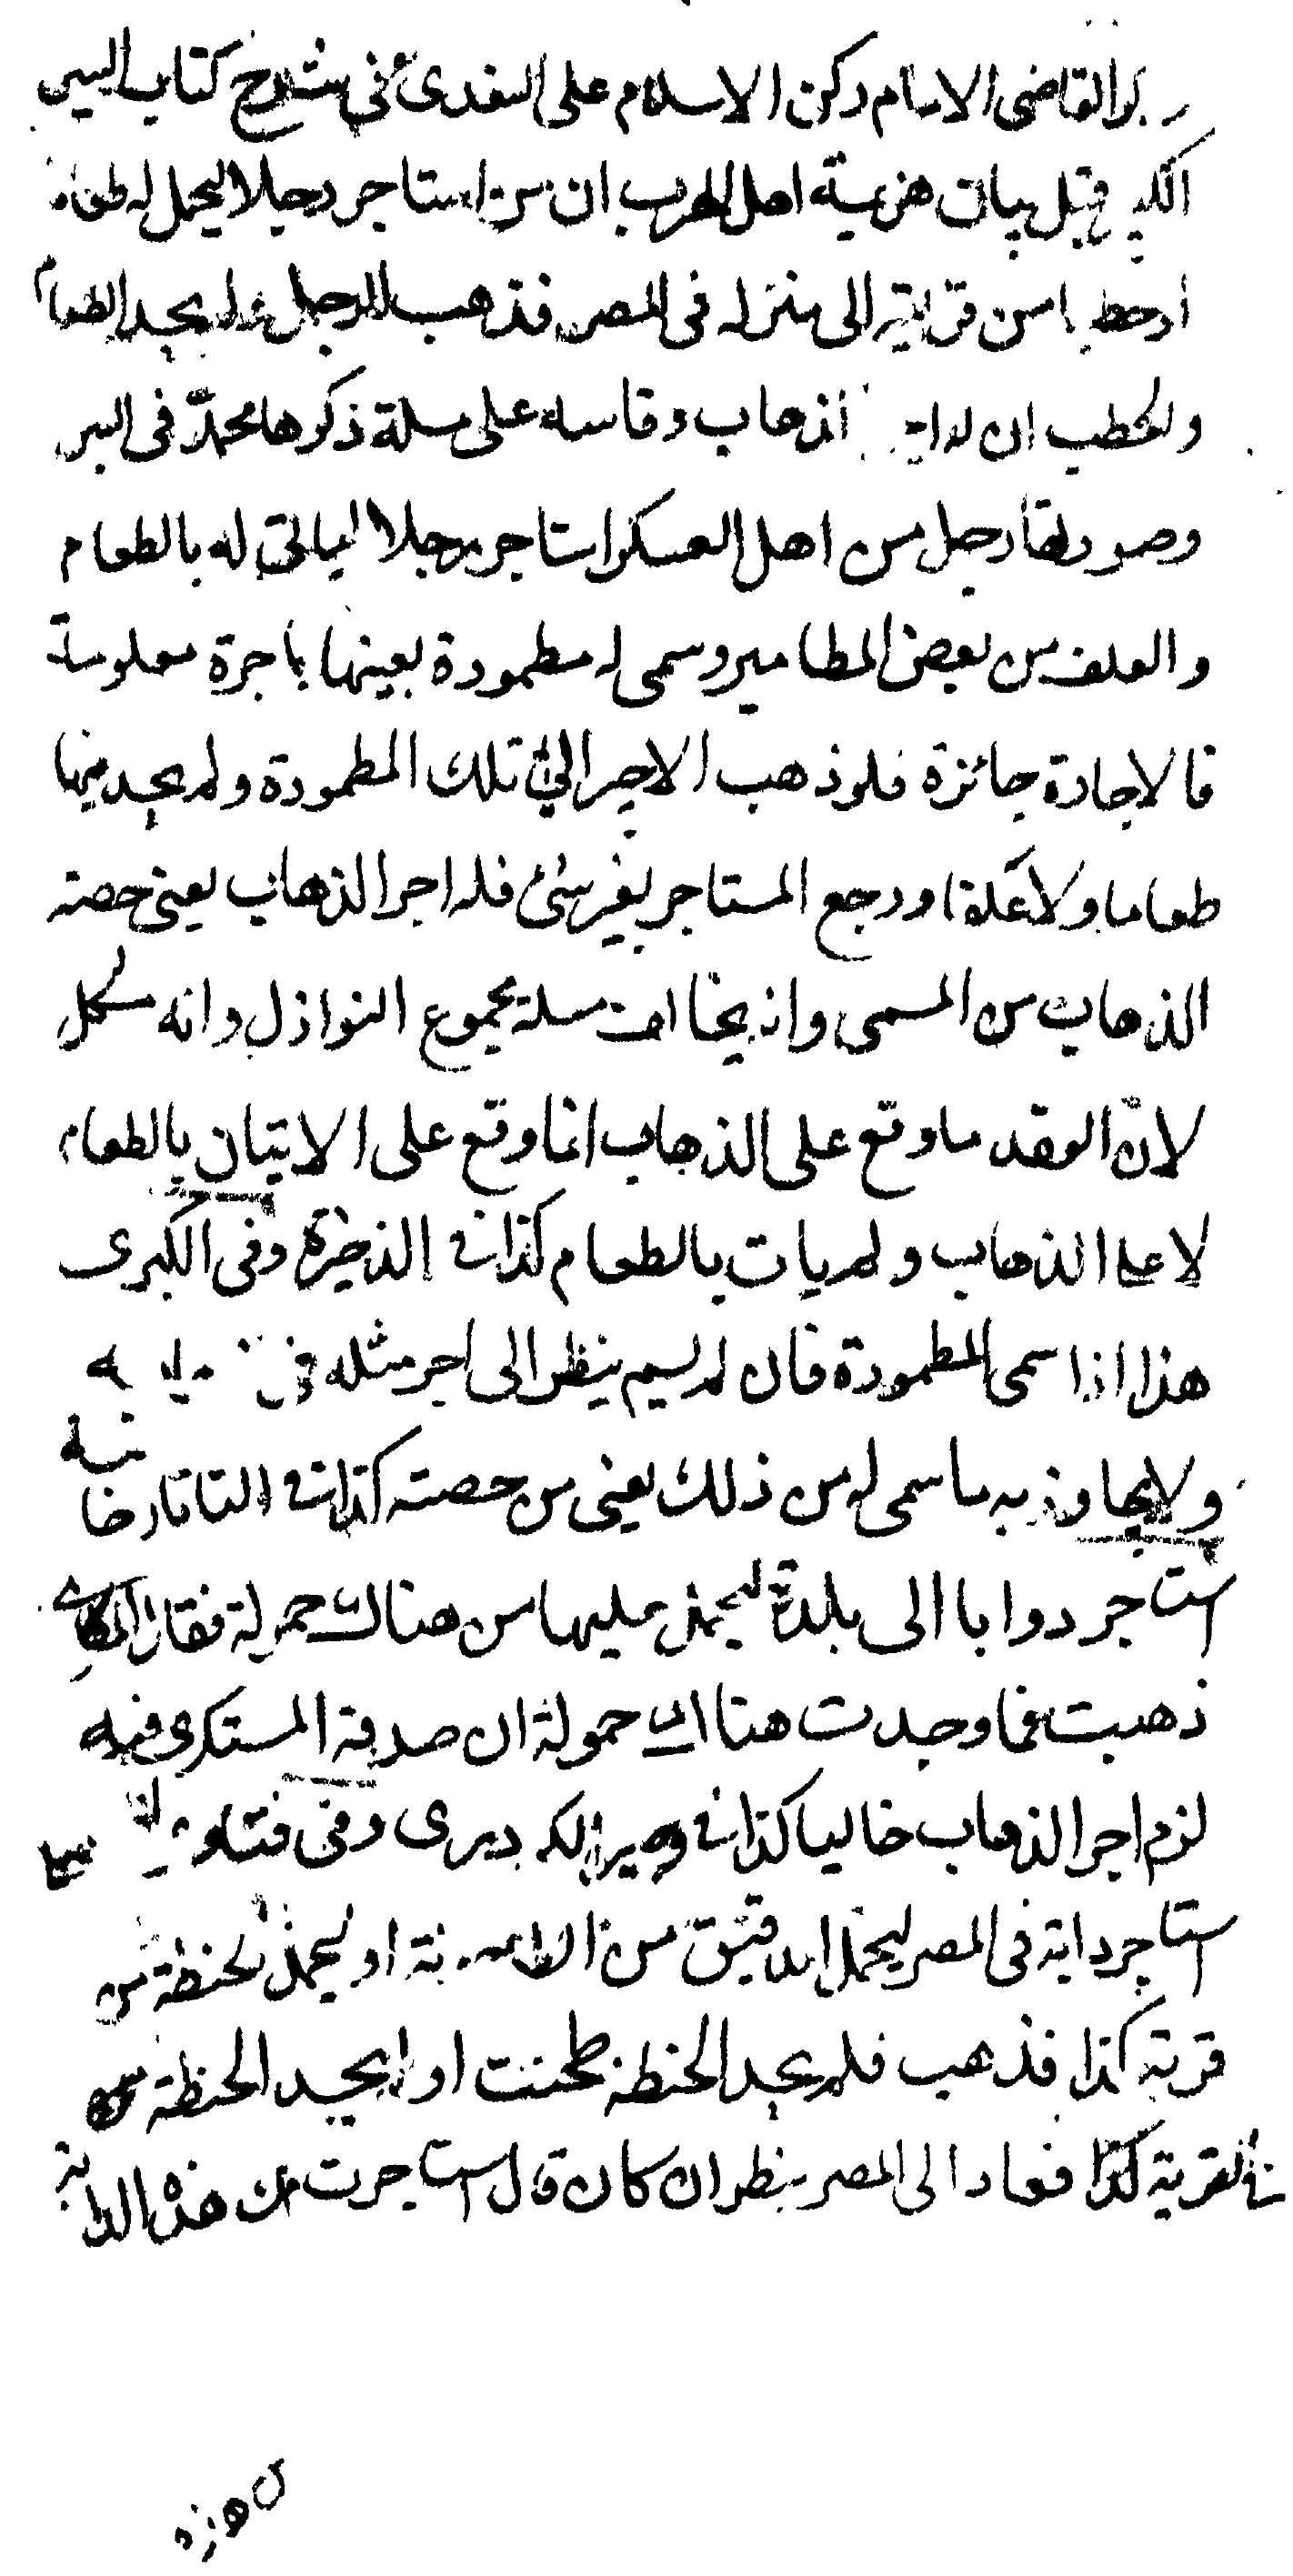 القاضي الامام ركن الاسلام على السغدى في شرح كتاب السير
الكبير قبل بيان هزيمة اهل الحرب ان من استاجر رجلا ليحمل له طعاما
او حطبا من قريته الى منزله في المصر فذهب الرجل ولم يجد الطعام
والحطب ان له الذهاب وقاسه على مسلة ذكرها محمد في السير
وصورتها رجل من اهل العسكر استاجر رجلا لياتي له بالطعام
والعلف من بعض المطامير وسمى له مطمورة بعينها باجرة معلومة
فالاجارة جائزة فلو ذهب الاجير الى تلك المطمورة ولم يجد فيها
طعاما ولا علفا ورجع المستاجر بغير شئ فله اجر الذهاب يعني حصته
الذهاب من المسمى وانه يخالف مسلة مجموع النوازل وانه مشكل
لان العقد ما وقع على الذهاب انما وقع على الاتيان بالطعام
لا على الذهاب ولم يات بالطعام كذا في الذخيرة وفي الكبرى
هذا اذا سمى المطمورة فان لم يسم ينظر الى اجر مثله في
ولا يجاوز به ما سمى له من ذلك يعني من حصته كذا في التاتارخانية
استاجر دوابا الى بلدة ليحمل عليها من هناك حمولة فقال المكارى
ذهبت فما وجدت هناك حمولة ان صدقه المستكرى فيه
لزم اجر الذهاب خاليا كذا في وجيز الكردرى وفي فتاوى
استاجر دابة في المصر ليحمل الدقيق من الطاحونة او ليحمل الحنطة من
قرية كذا فذهب فلم يجد الحنطة طحنت او لم يجد الحنطة
في القرية كذا فعاد الى المصر ينظر ان كان قال استاجرت منك هذه الدابة
من هذه